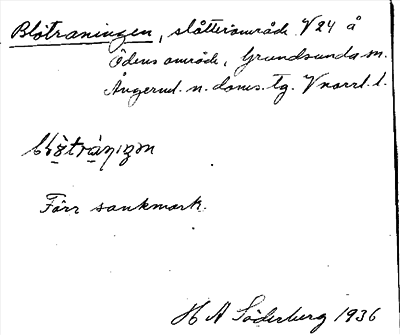 Blötraningen, slåtterområde V24 å
Ödens område, Grundsunda sn.
Ångerml. n. doms. tg. Vnorrl. l.
Förr sankmark.
H A Söderberg 1936